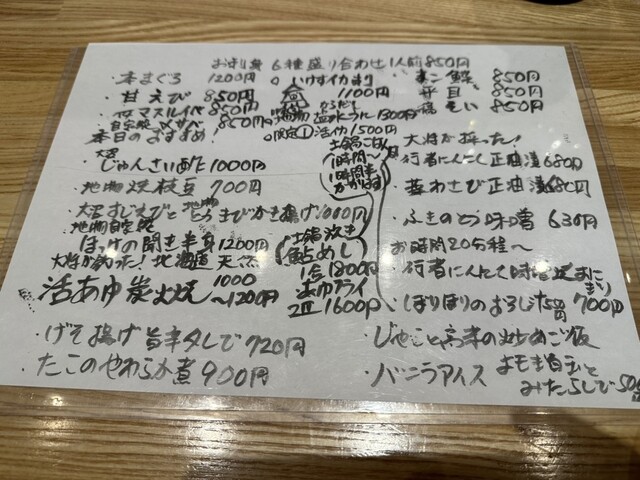 お刺身6種盛り合わせ1人前850円
・本まぐろ 1200円
・甘えび 850円
850円
850円
本日のおすすめ
いけすイカ刺
1100円
1300円
活 1500円
850円
・平目 850円
850円
大沼 じゅんさい 1000円
・地物焼枝豆 700円
・大沼すじえびと地物とうきびかき揚げ1000円
地物自家製
ほっけの開き半身1200円
大将が釣った!北海道天然
活あゆ炭火焼 1000〜1200円
・げそ揚げ旨辛タレで720円
・たこのやわらか煮900円
土鍋ごはん
1時間〜
1時間半
かかります
土鍋炊き
鮎めし
1合1800円
あゆフライ
2匹1600円
大将が採った!
・行者にんにく正油漬680円
・葉わさび正油漬680円
・ふきのとう味噌630円
お時間20分程〜
・行者にんにく おにぎり
700円
・じゃこと高菜の炒めご飯
・バニラアイス よもぎ白玉と
みたらしで